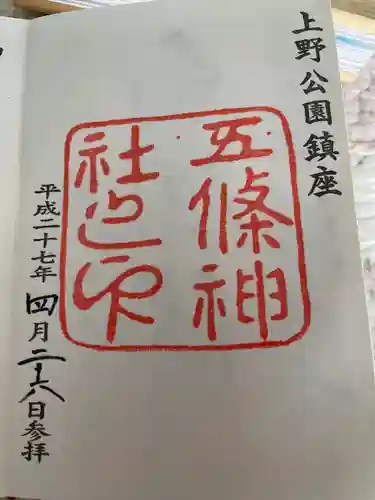 上野公園鎮座
五條神
社之印
平成二十七年四月二十六日参拝